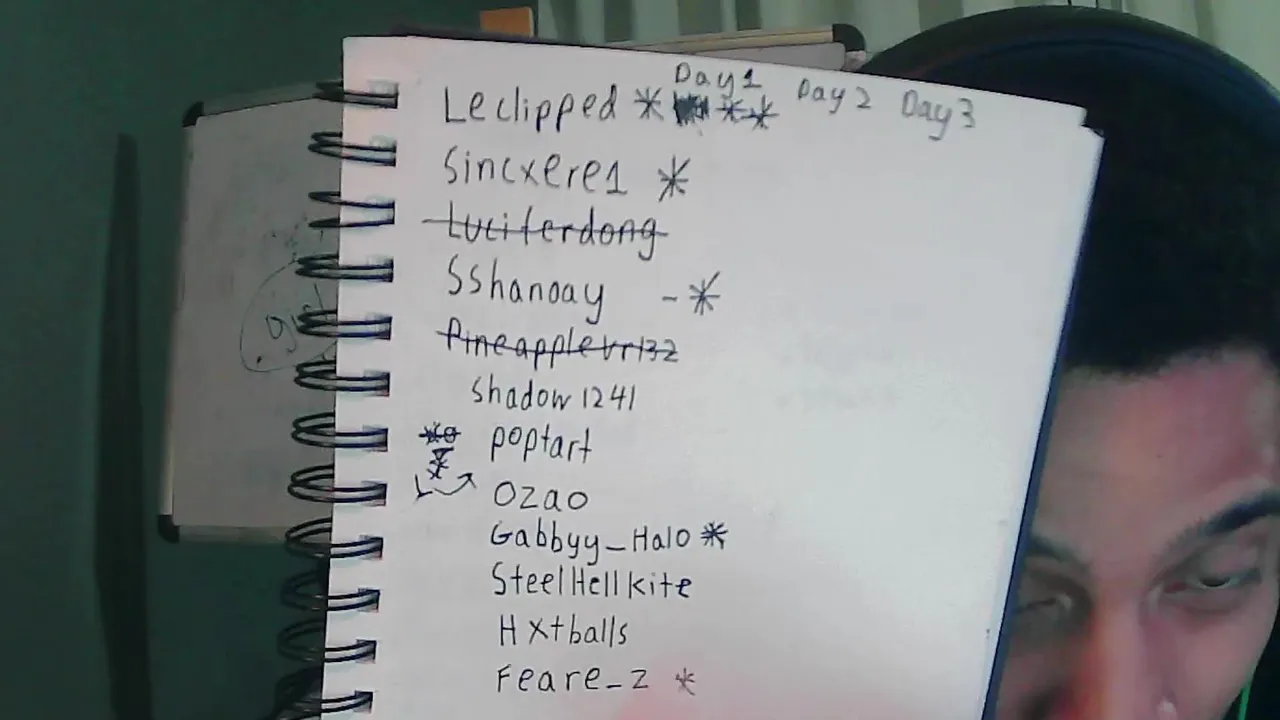 Day 1 Day 2 Day 3
Leclipped * **
Sincxere1 *
Luciferdong
Sshanoay - *
Pineapplevr132
Shadow 1241
poptart
Ozao
Gabbyy_Halo *
SteelHellkite
Hxtballs
Feare_z *